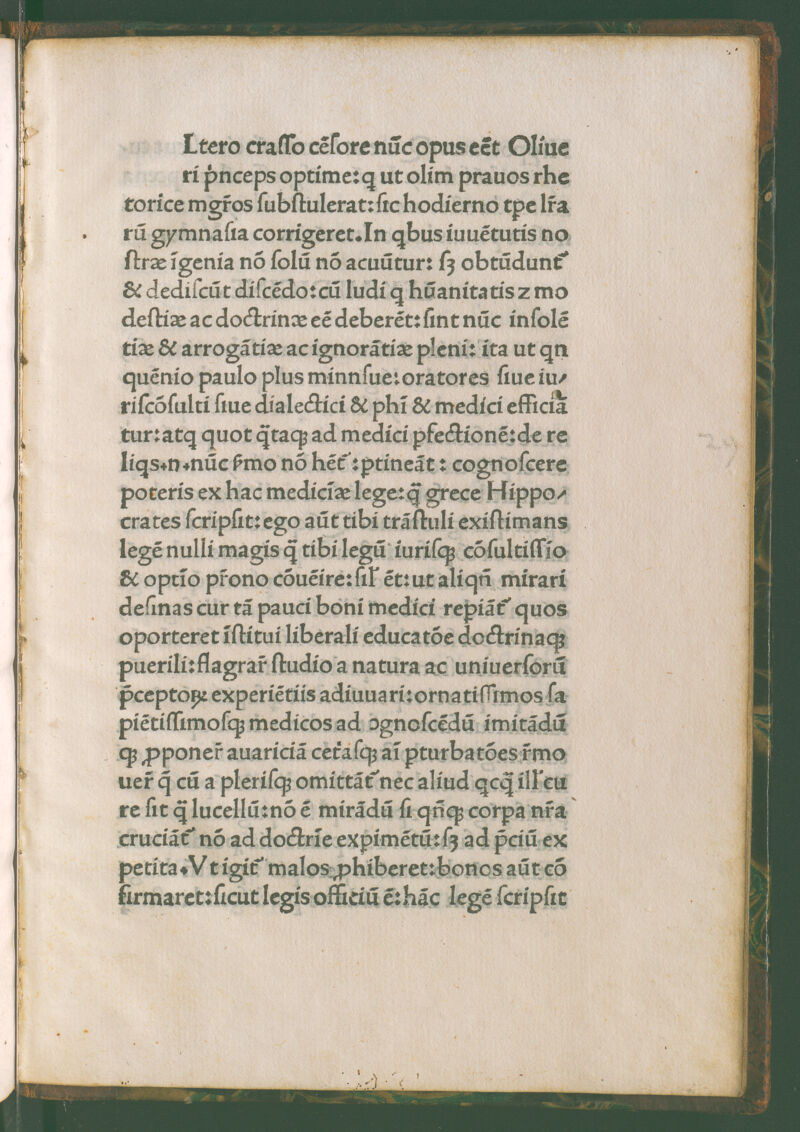 Ltero craſſo cēſore nūc opus eēt Oliue
ri p̄nceps optime: q ut olim prauos rhe
torice mgr̄os ſubſtulerat: ſic hodierno tpe lr̄a
rū gymnaſia corrigeret. In qbus iuuētutis no
ſtræ īgenia nō ſolū nō acuūtur: ſꝫ obtūdunt᷑
& dediſcūt diſcēdo: cū ludi q hūanitatis z mo
deſtiæ ac doctrinæ eē deberēt: ſint nūc inſolē
tiæ & arrogātiæ ac ignorātiæ pleni: ita ut qn
quēnio paulo plus minnſue: oratores ſiue iu⸗
riſcōſulti ſiue dialectici & phī & medici efficiā
tur: atq quot q̄taqꝫ ad medici pfectionē: de re
liqs.n.nūc r̄mo nō hēt᷑: ptineāt: cognoſcere
poteris ex hac medicīæ lege: q̄ grece Hippo⸗
crates ſcripſit: ego aūt tibi trāſtuli exiſtimans
legē nulli magis q̄ tibi legū iuriſqꝫ cōſultiſſīo
& optīo pr̄ono cōuēire: ſil᷑ ēt: ut aliqn̄ mirari
deſinas cur tā pauci boni medici repiāt᷑ quos
oporteret īſtitui liberali educatōe doctrinaqꝫ
puerili: flagrar̄ ſtudio a natura ac uniuerſorū
p̄ceptoꝝ experiētiis adiuuari: ornatiſſimos ſa
piētiſſimoſqꝫ medicos ad ꝯgnoſcēdū imitādū
qꝫ ꝓponer̄ auariciā cet̄aſqꝫ aī pturbatōes r̄mo
uer̄ q̄ cū a pleriſqꝫ omittāt᷑ nec aliud qcq̄ ill᷑ cu
re ſit q̄ lucellū: nō ē mirādū ſi qn̄qꝫ corpa nr̄a
cruciāt᷑ nō ad doctrīe expimētū: ſꝫ ad p̄ciū ex
petita. Vt igit᷑ malos ꝓhiberet: bonos aūt cō
firmaret: ſicut legis officiū ē: hāc legē ſcripſit